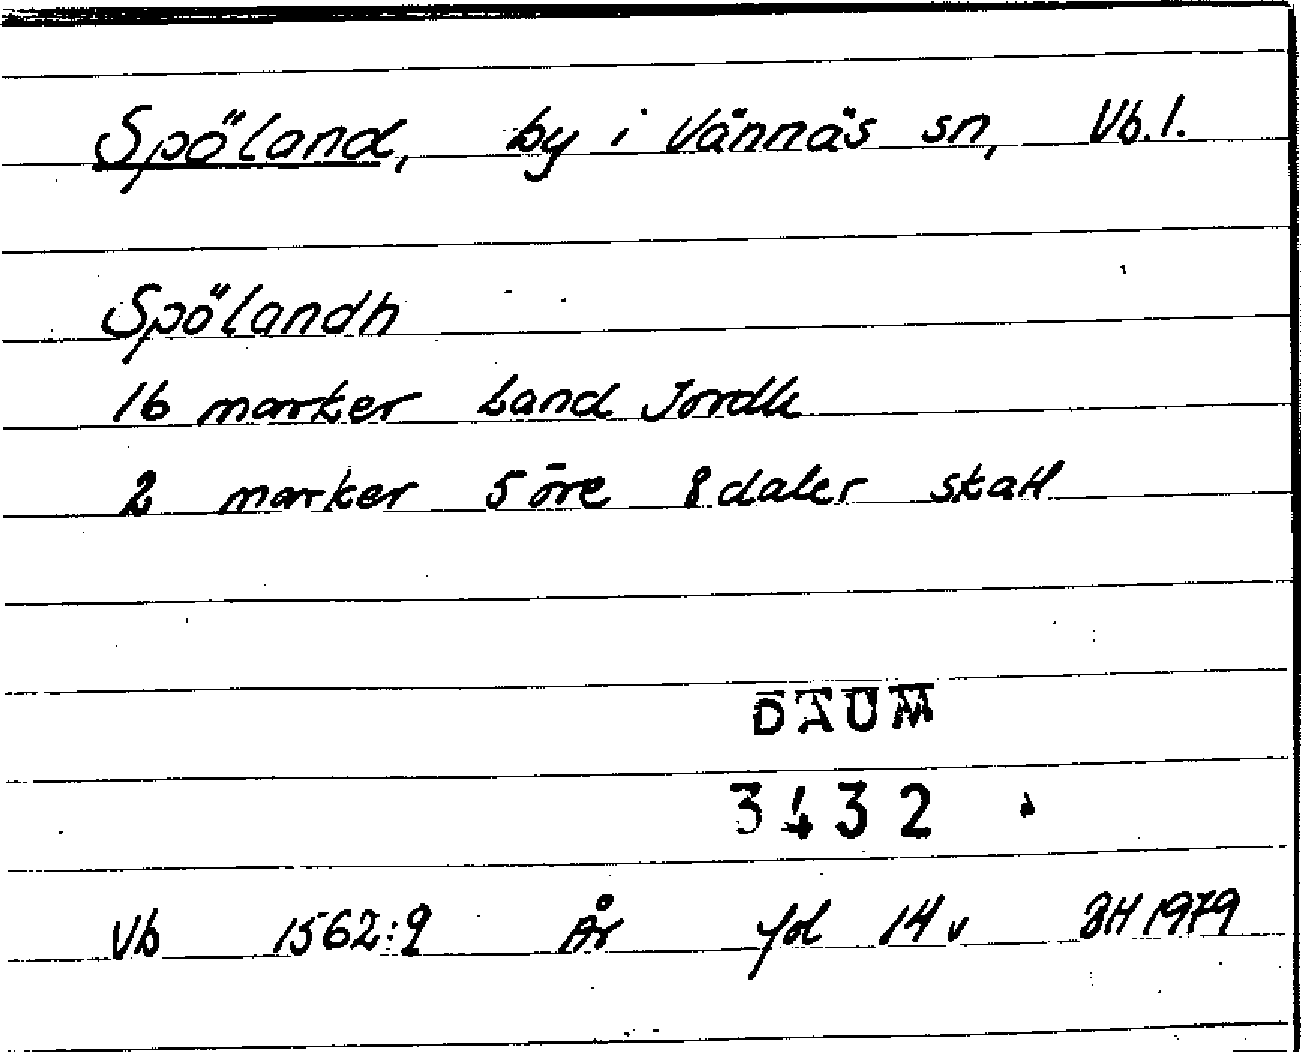 Spöland, by i Vännäs sn, Vb.l.
Spölandh
16 marker Land Jordh
2 marker 5 öre 8 daler skatt
DAUM
3432
Vb 1562:9 År fol 14 v BH 1979